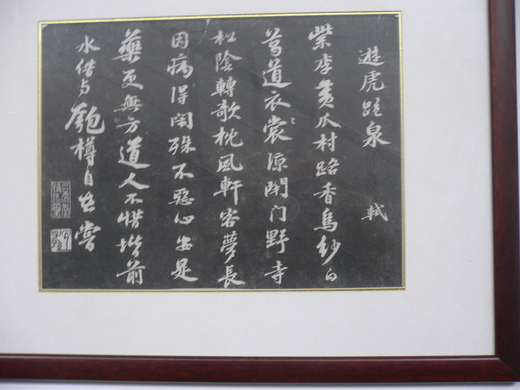 遊虎跑泉 軾
紫李黄瓜村路香烏紗白
葛道衣裳涼閉门野寺
松陰轉欹枕風軒客夢長
因病得閑殊不惡心安是
藥更無方道人不惜堦前
水借与匏樽自在嘗